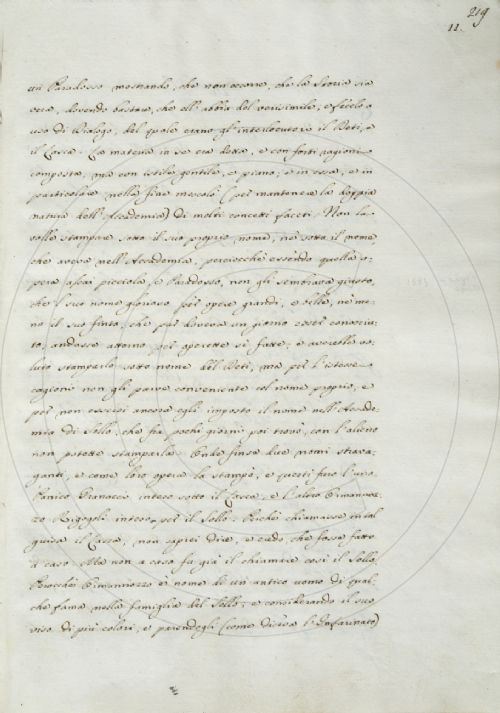 219
11.
un Paradosso mostrando, che non occorre, che la Storia sia
vera, dovendo bastare, che ell' abbia del verisimile, e fecelo a
uso di Dialogo, del quale erano gl' interlocutori il Beti, e
il Lasca. La materia in se era dotta, e con forti ragioni
composta, ma con istile gentile, e piano; e in essa, e in
particolare nella fine mescolò (per mantenere la doppia
natura dell' Accademia) di molti concetti faceti. Non la
volle stampare sotto il suo proprio nome, nè sotto il nome,
che aveva nell' Accademia, perciocchè essendo quella o-
pera assai picciola, e Paradosso, non gli sembrava giusto,
che 'l suo nome glorioso per opere grandi, e utili, nè me-
no il suo finto, che pur doveva un giorno esser conosciu-
to, andasse attorno per operette sì fatte; e averebbe vo-
luto stamparlo sotto nome del Beti, ma per l'istesse
cagioni non gli parve conveniente col nome proprio, e
per non essersi ancora egli imposto il nome nell' Accade-
mia di Sollo, che fra pochi giorni poi trovò, con l'alieno
non potette stamparla. Onde finse due nomi strava-
ganti, e come loro opera la stampò, e questi furo l'uno
Panico Granacci inteso sotto il Lasca, e l'altro Ormannoz-
zo Rigogoli inteso per il Sollo. Perchè chiamasse in tal
guisa il Lasca, non saprei dire, e credo che fosse fatto
a caso. Ma non a caso fu già il chiamare così il Sollo
Perocchè Ormannozzo è nome di un antico uomo di qual-
che fama nella famiglia del Sollo; e considerando il suo
viso di più colori, e parendogli (come diceva l'Infarinato)